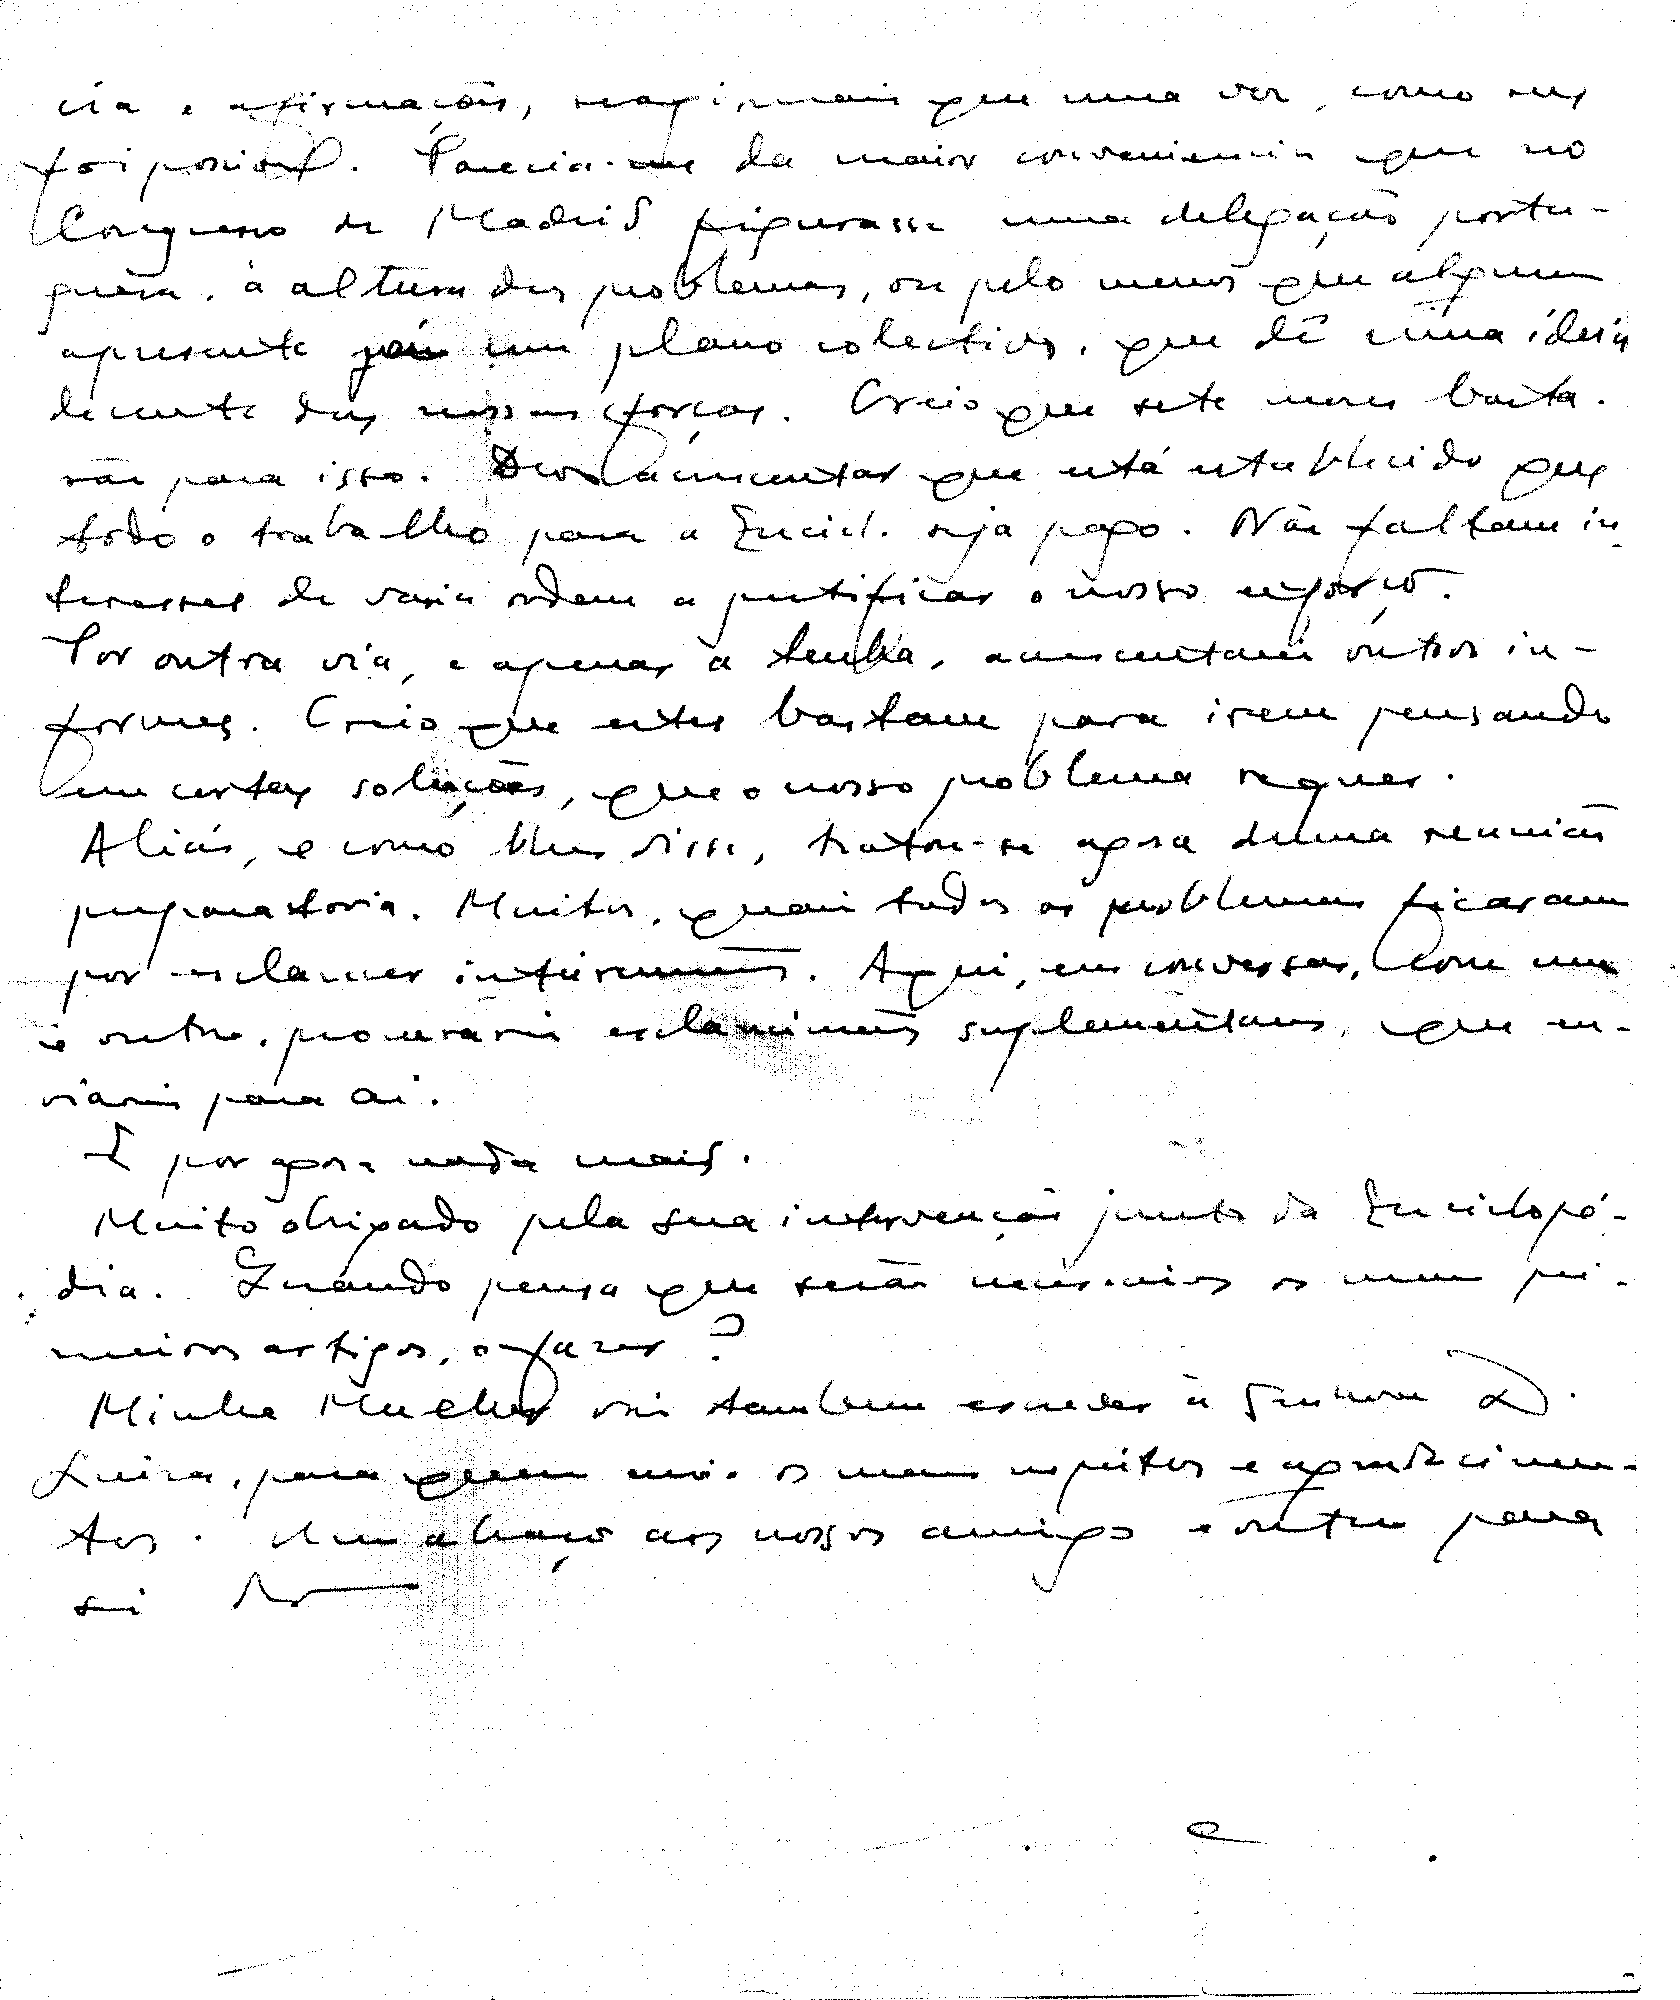 cia e afirmações, reagi mais que uma vez, como me
foi possivel. Parecia-me da maior conveniencia que no
Congresso de Madrid figurasse uma delegação portu-
guêsa, à altura dos problemas, ou pelo menos que alguem
apresente um plano colectivo, que dê uma ideia
decente das nossas forças. Creio que sete meses basta-
rão para isso. Devo acrescentar que está establecido que
todo o trabalho para a Encicl. seja pago. Não faltam in-
teresses de varia ordem a justificar o nosso esforço.
Por outra via, e apenas a tenha, acrescentarei outros in-
formes. Creio que estes bastam para irem pensando
em certas soluções, que o nosso problema requer.
Aliás, e como lhes disse, tratou-se agora duma reunião
preparatoria. Muitos, quasi todos os problemas ficaram
por esclarecer inteiramente. Aqui, em conversas, com um
e outro, procurarei esclarecimentos suplementares, que en-
viarei para aí.
E por agora nada mais.
Muito obrigado pela sua intervenção junto da Enciclopé-
dia. Quando pensa que serão necessarios os meus pri-
meiros artigos, a fazer?
Minha Mulher vai tambem escrever à Senhora D.
Luiza, para quem envio os meus respeitos e agradecimen-
tos. Um abraço aos nossos amigos e outro para
si